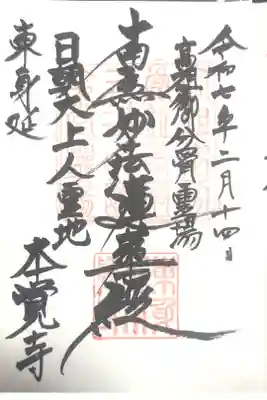 令和七年二月十四日
高祖御分骨霊場
南無妙法蓮華経
日朝大上人霊地
東身延
本覚寺